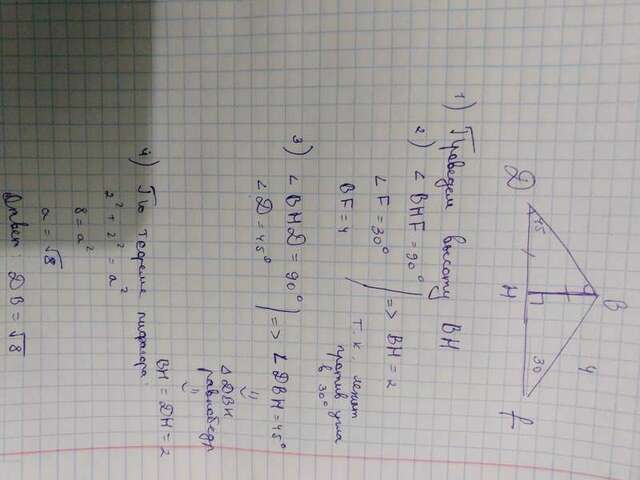 В
D
45
H
30
F
4
1) Проведем высоту BH
2) ∠ BHF = 90°
∠ F = 30°
BF = 4
=> BH = 2
т.к. лежит
против угла
в 30°
3) ∠ BHD = 90°
∠ D = 45°
=> ∠ DBH = 45°
Δ DBH
равнобедр
BH = DH = 2
4) По теореме пифагора:
2² + 2² = a²
8 = a²
a = √8
Ответ: DB = √8